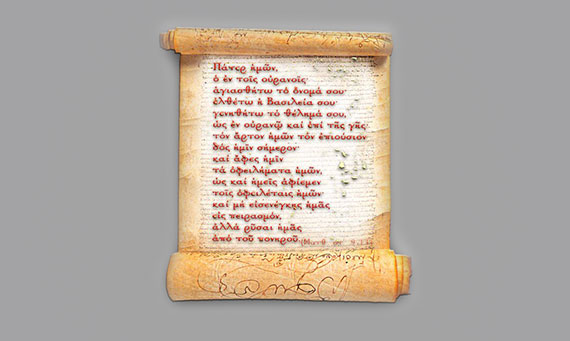 Πάτερ ἡμῶν,
ὁ ἐν τοῖς οὐρανοῖς·
ἁγιασθήτω τὸ ὄνομά σου·
ἐλθέτω ἡ Βασιλεία σου·
γενηθήτω τὸ θέλημά σου,
ὡς ἐν οὐρανῷ καί ἐπί τῆς γῆς·
τόν ἄρτον ἡμῶν τόν ἐπιούσιον
δός ἡμῖν σήμερον·
καί ἄφες ἡμῖν
τά ὀφειλήματα ἡμῶν,
ὡς καί ἡμεῖς ἀφίεμεν
τοῖς ὀφειλέταις ἡμῶν·
καί μή εἰσενέγκης ἡμᾶς
εἰς πειρασμόν,
ἀλλά ρῦσαι ἡμᾶς
ἀπό τοῦ πονηροῦ